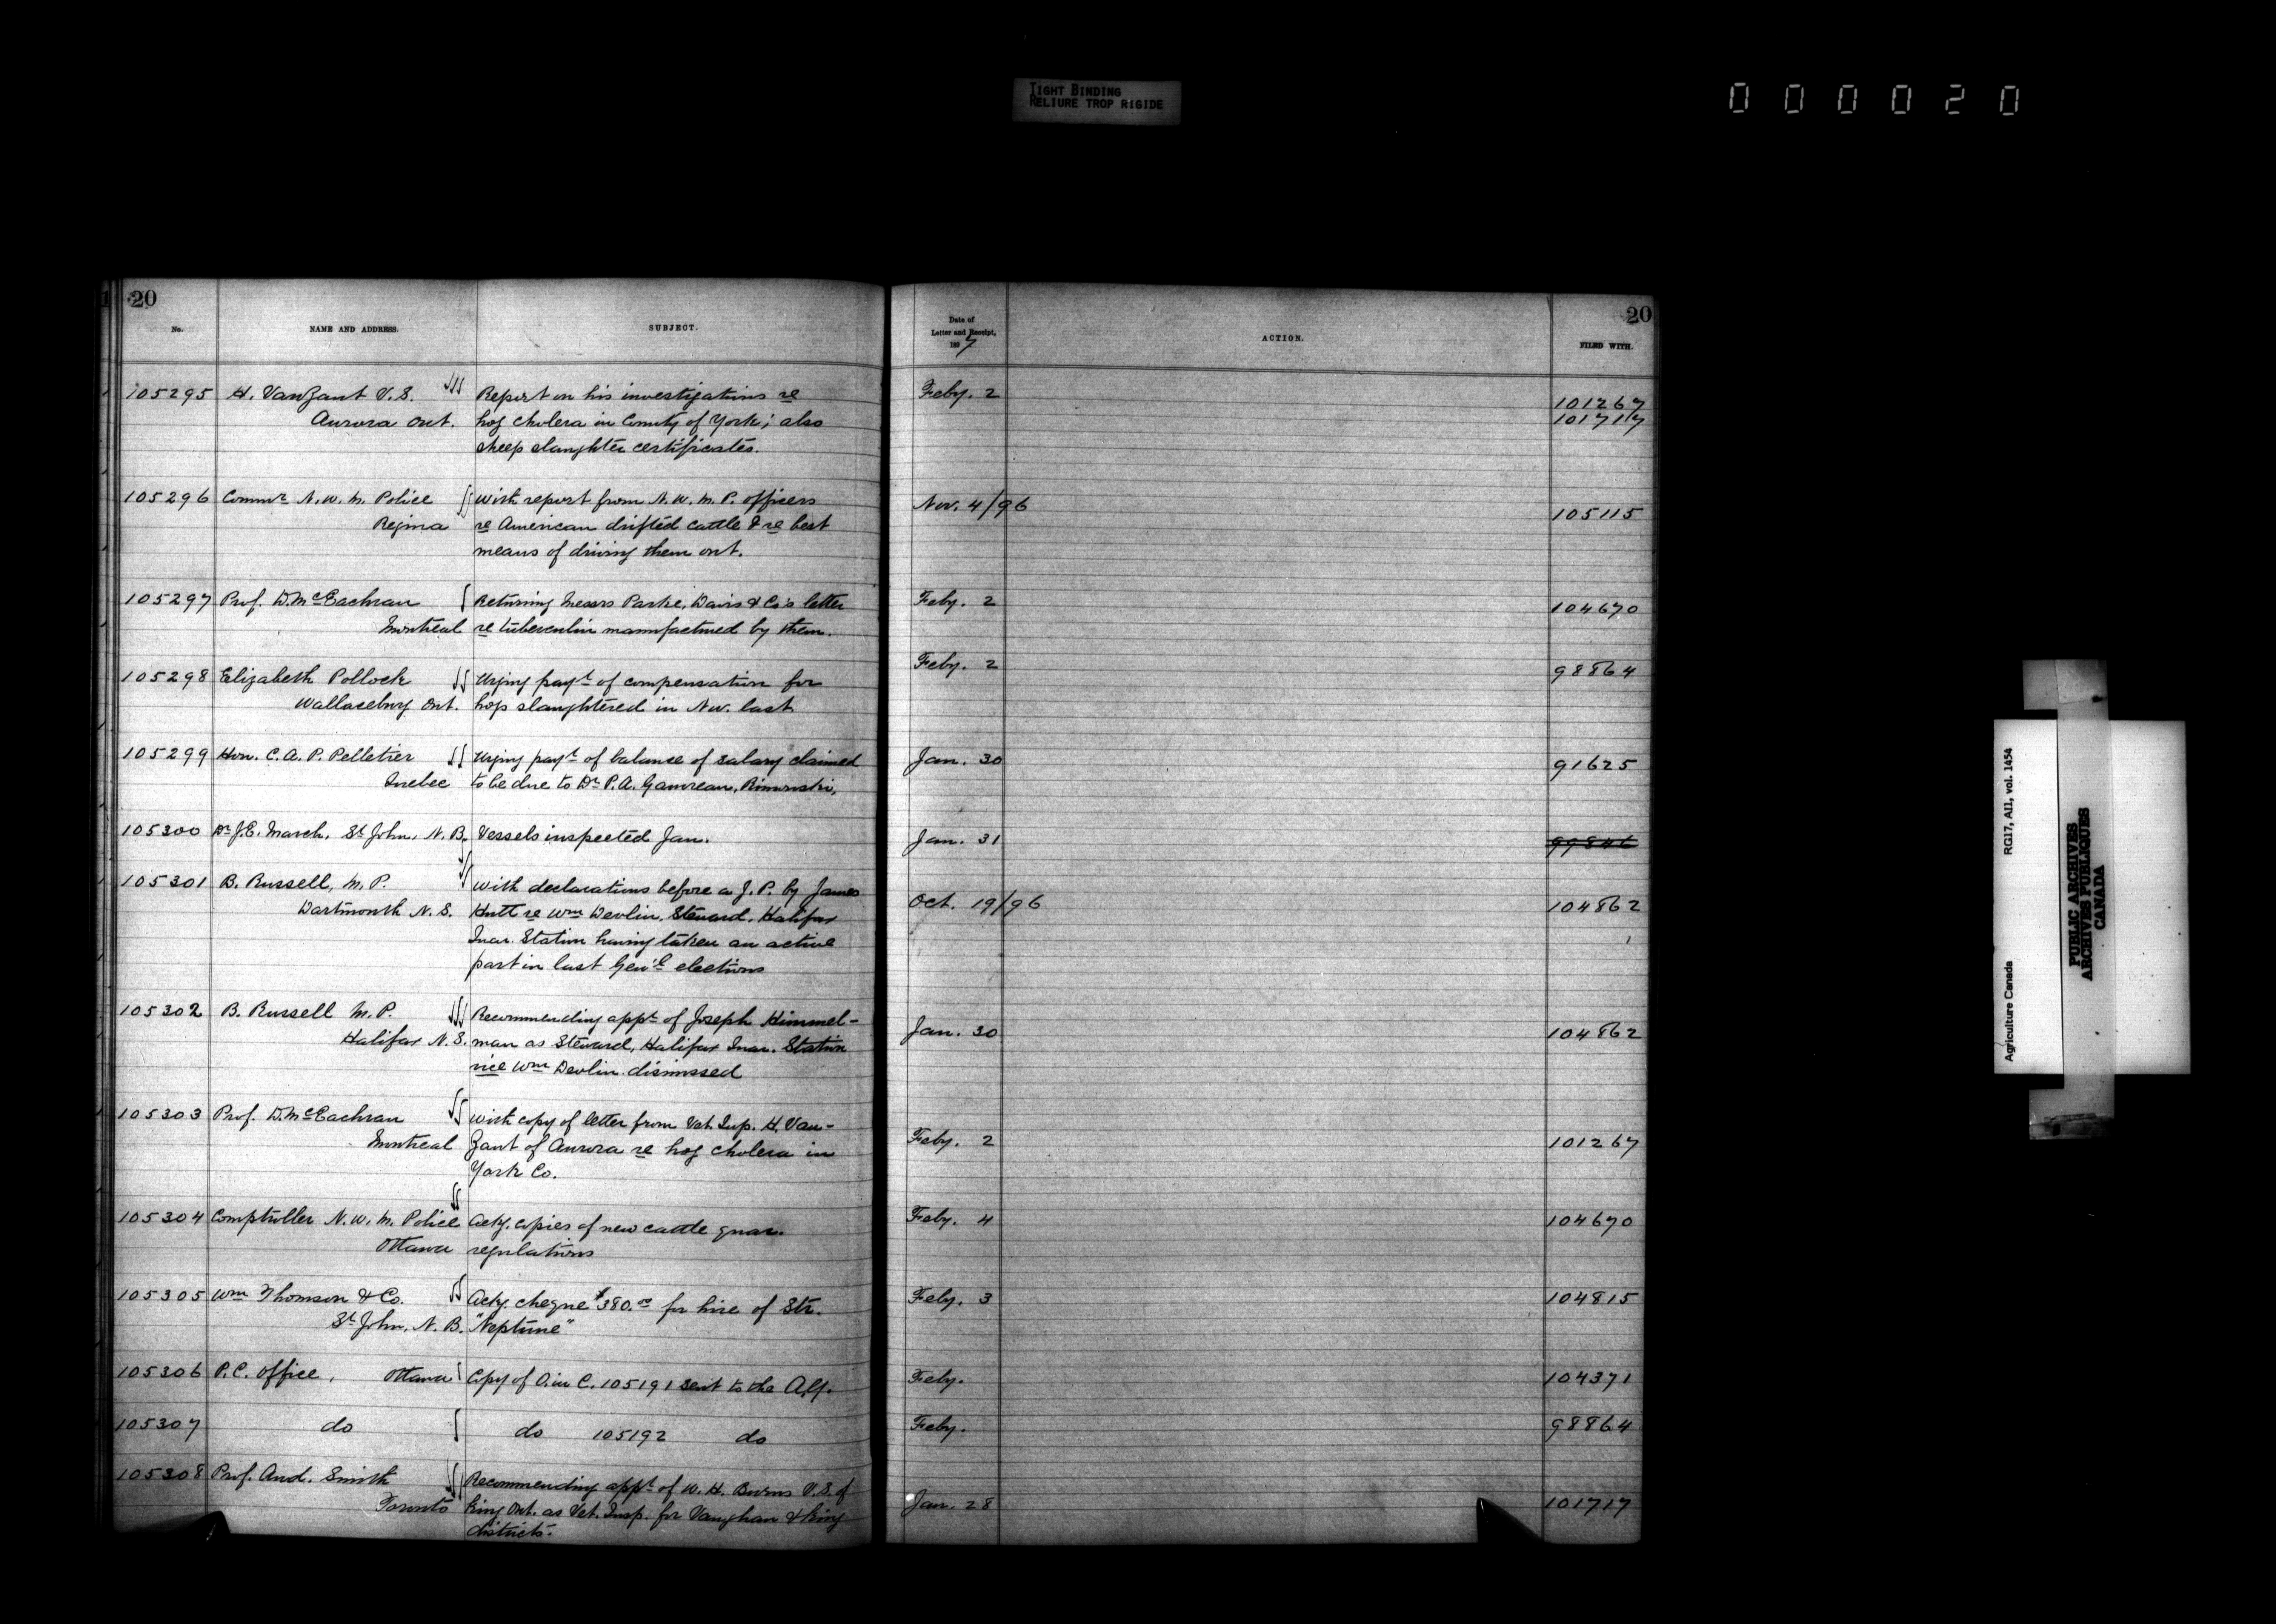 TIGHT BINDING
RELIURE TROP RIGIDE
000020
20
No.
NAME AND ADDRESS.
SUBJECT.
Date of
Letter and Receipt,
1897
ACTION.
20
FILED WITH.
105295 H. VanZant V.S. Report on his investigations re Feby. 2 101267
Aurora Ont. hog cholera in County of York; also 101717
sheep slaughter certificates.
105296 Commr N.W.M. Police With report from N.W.M.P. officers Nov. 4/96 105115
Regina re American drifted cattle & re best
means of driving them out.
105297 Prof. D. McEachran Returning Messrs Parke, Davis & Co's letter Feby. 2 104670
Montreal re tuberculin manufactured by them.
105298 Elizabeth Pollock Urging payt of compensation for Feby. 2 98864
Wallaceburg Ont. hogs slaughtered in Nov. last
105299 Hon. C.A.P. Pelletier Urging payt of balance of salary claimed Jan. 30 91625
Quebec to be due to Dr P.A. Gauvreau, Rimouski,
105300 Dr J.E. March, St John, N.B. Vessels inspected Jan. Jan. 31 99846
105301 B. Russell, M.P. With declarations before a J.P. by James Oct. 19/96 104862
Dartmouth N.S. Hutt re Wm Devlin, Steward, Halifax
Quar. Station having taken an active
part in last Gen'l elections
105302 B. Russell M.P. Recommending appt of Joseph Himmel- Jan. 30 104862
Halifax N.S. man as Steward, Halifax Quar. Station
vice Wm Devlin dismissed
105303 Prof. D. McEachran With copy of letter from Vet. Insp. H. Van- Feby. 2 101267
Montreal Zant of Aurora re hog cholera in
York Co.
105304 Comptroller N.W.M. Police Ackg. copies of new cattle quar. Feby. 4 104670
Ottawa regulations
105305 Wm Thomson & Co. Ackg. cheque $380.00 for hire of Str. Feby. 3 104815
St John, N.B. "Neptune"
105306 P.C. Office, Ottawa Copy of O. in C. 105191 sent to the A.G. Feby. 104371
105307 do do 105192 do Feby. 98864
105308 Prof. And. Smith Recommending appt of W.H. Burns V.S. of Jan. 28 101717
Toronto King Ont. as Vet. Insp. for Vaughan & King
districts.
Agriculture Canada RG17, AII, vol. 1454
PUBLIC ARCHIVES
ARCHIVES PUBLIQUES
CANADA